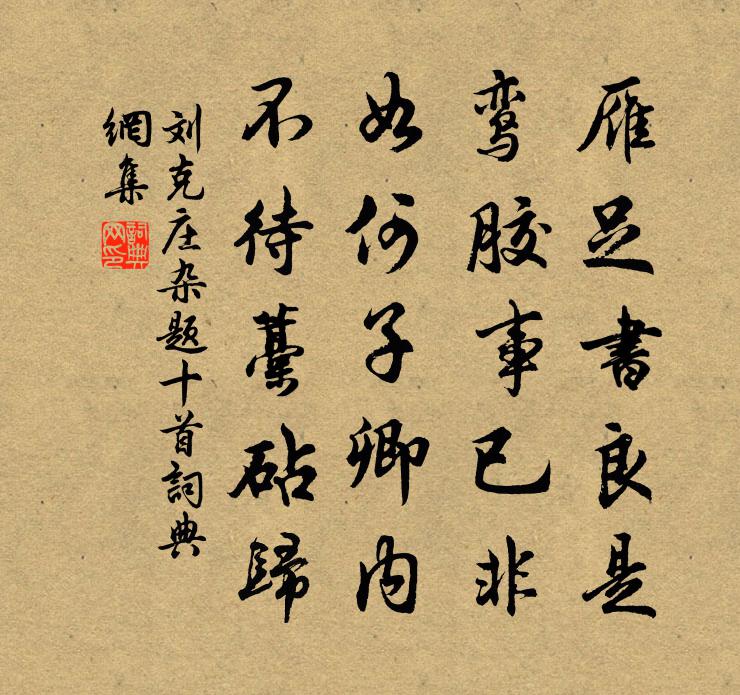 雁足書良是
鸾胶事已非
如何子卿内
不待藁砧歸
刘克庄杂题十首詞典
網集
詞典
网印